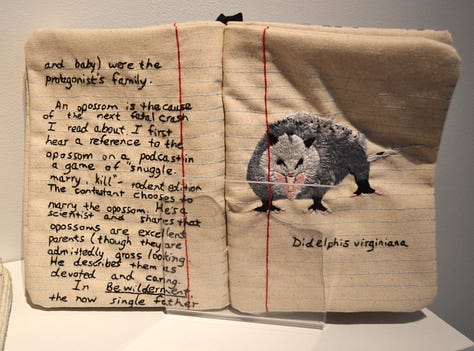 and baby) were the
protagonist's family.
An opossom is the cause
of the next fatal crash
I read about. I first
hear a reference to the
opossom on a podcast in
a game of "snuggle,
marry, kill" - rodent edition
The contestant chooses to
marry the opossom. He's a
scientist and shares that
opossoms are excellent
parents (though they are
admittedly gross looking.
He describes them as
devoted and caring.
In Bewilderment,
the now single father
Didelphis virginiana